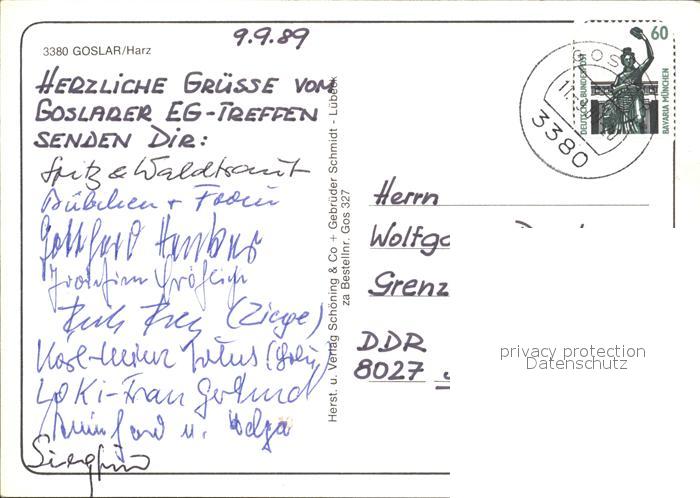 9.9.89
3380 GOSLAR/Harz
HERZLICHE GRÜSSE VOM
GOSLARER EG-TREFFEN
SENDEN DIR:
Fritz & Waldtraut
Bübchen +
Gotthard
Joachim Fröhlich
(Ziege)
Karl-Heinz
LOKI-Frau Gertrud
u. Helga
Siegfried
Herst. u. Verlag Schöning & Co + Gebrüder Schmidt - Lübeck
za Bestellnr. Gos 327
60
DEUTSCHE BUNDESPOST
BAVARIA MÜNCHEN
GOS
3380
Herrn
Wolfga
Grenz
DDR
8027
privacy protection
Datenschutz